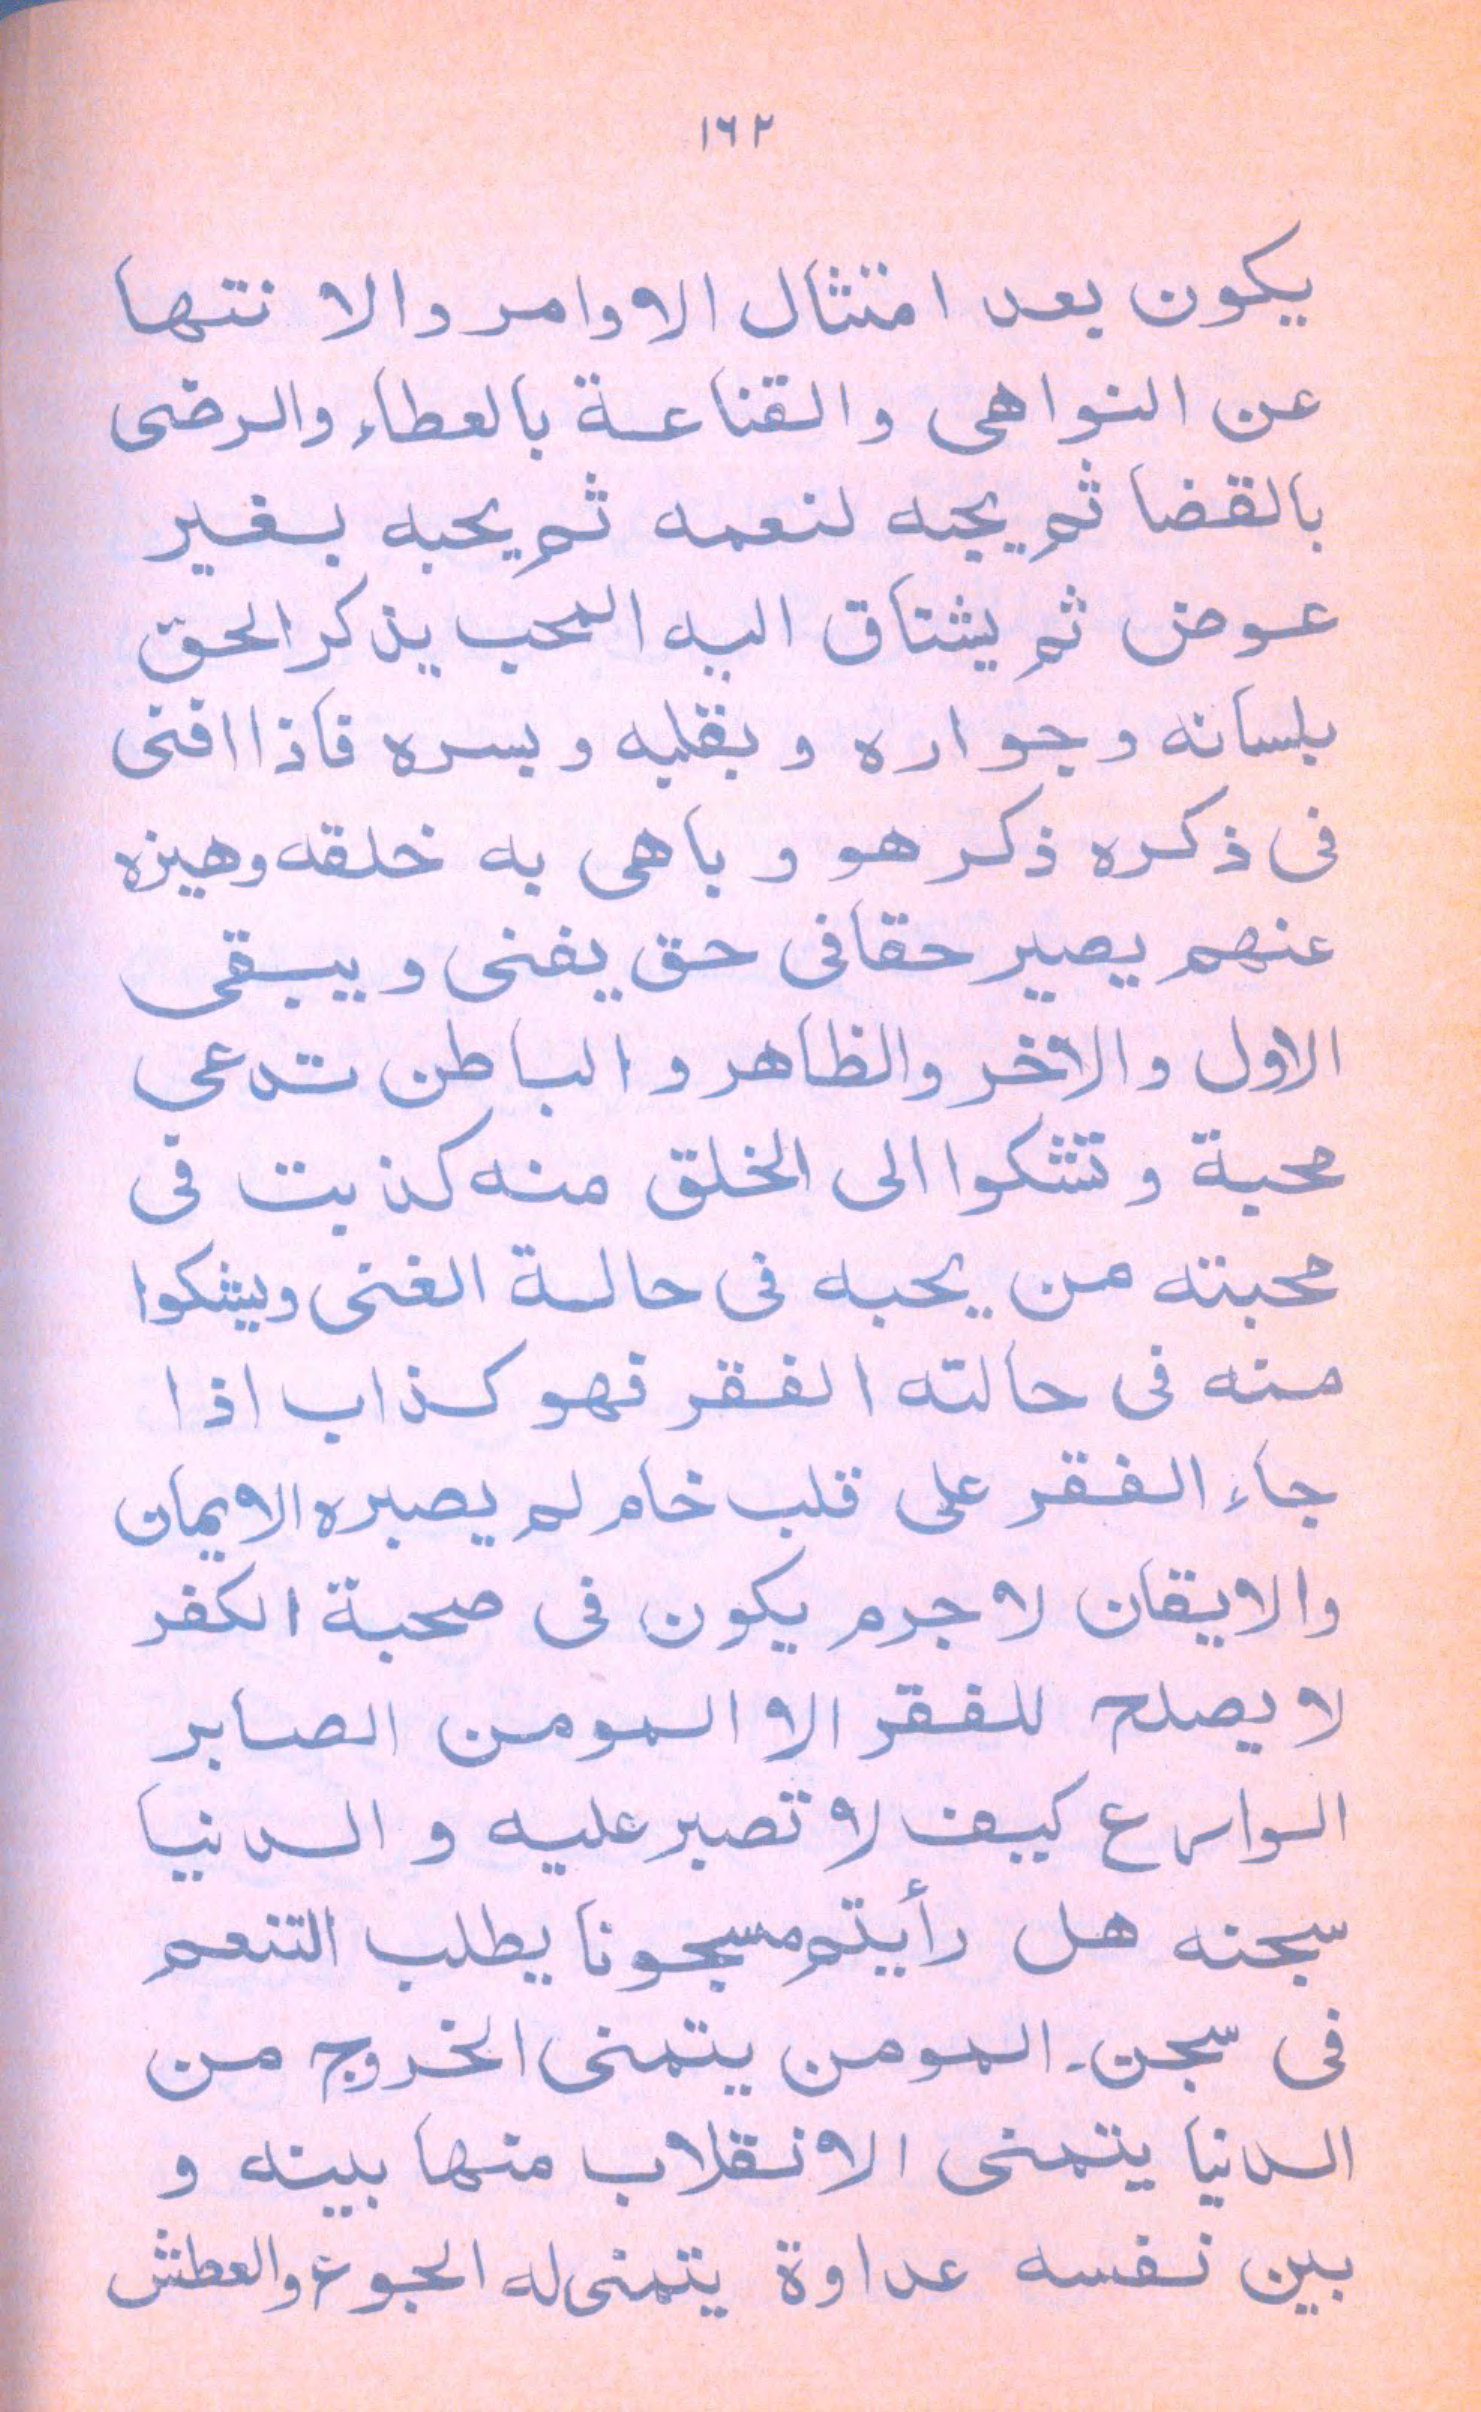 ١٦٢
يكون بعد امتثال الاوامر والا نتها
عن النواهى والقناعة بالعطاء والرضى
بالقضا ثم يحبه لنعمه ثم يحبه بغير
عوض ثم يشتاق اليه المحب يذكر الحق
بلسانه وجواره وبقلبه وبسره فاذا افنى
فى ذكره ذكر هو و باهى به خلقه وهيزه
عنهم يصير حقافى حق يفنى و يبقى
الاول والآخر والظاهر و الباطن تدعى
محبة وتشكوا الى الخلق منه كذبت فى
محبته من يحبه فى حالة الغنى ويشكوا
منه فى حالته الفقر فهو كذاب اذا
جاء الفقر على قلب خام لم يصبره الايمان
والايقان لا جرم يكون فى صحبة الكفر
لا يصلح للفقر الا المومن الصابر
الوارع كيف لا تصبر عليه و الدنيا
سجنه هل رأيتم مسجونا يطلب التنعم
فى سجن۔ المومن يتمنى الخروج من
الدنيا يتمنى الانقلاب منها بينه و
بين نفسه عداوة يتمنى له الجوع والعطش